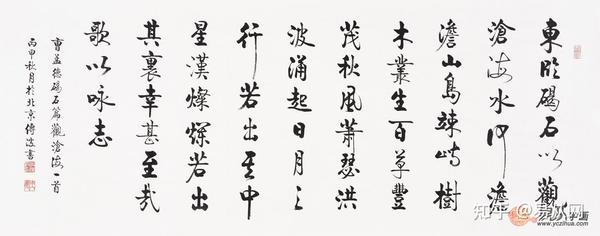 東臨碣石以觀
滄海水何澹
澹山島竦峙樹
木叢生百草豐
茂秋風蕭瑟洪
波涌起日月之
行若出其中
星漢燦爛若出
其裏幸甚至哉
歌以咏志
曹孟德碣石篇觀滄海一首
丙申秋月於北京傅波書
知乎
www.yczihua.com